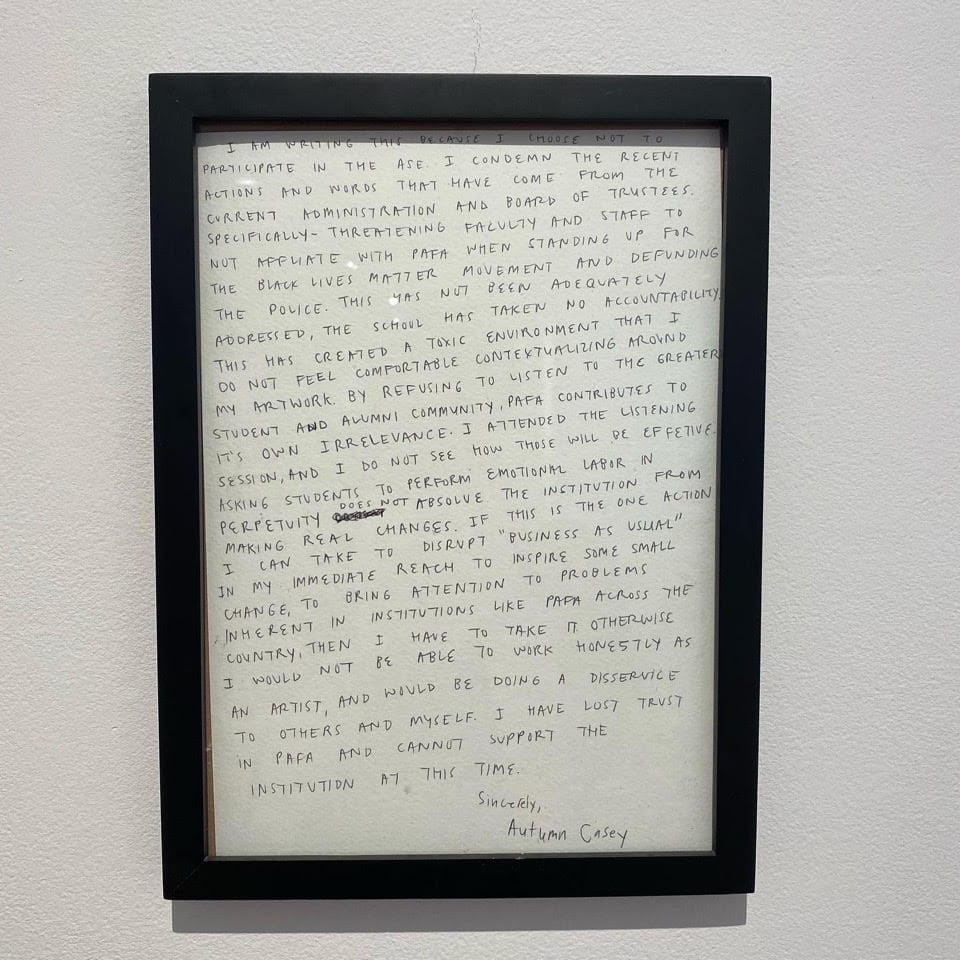 I AM WRITING THIS BECAUSE I CHOOSE NOT TO
PARTICIPATE IN THE ASE. I CONDEMN THE RECENT
ACTIONS AND WORDS THAT HAVE COME FROM THE
CURRENT ADMINISTRATION AND BOARD OF TRUSTEES.
SPECIFICALLY- THREATENING FACULTY AND STAFF TO
NOT AFFLIATE WITH PAFA WHEN STANDING UP FOR
THE BLACK LIVES MATTER MOVEMENT AND DEFUNDING
THE POLICE. THIS HAS NOT BEEN ADEQUATELY
ADDRESSED, THE SCHOOL HAS TAKEN NO ACCOUNTABILITY.
THIS HAS CREATED A TOXIC ENVIRONMENT THAT I
DO NOT FEEL COMFORTABLE CONTEXTUALIZING AROUND
MY ARTWORK. BY REFUSING TO LISTEN TO THE GREATER
STUDENT AND ALUMNI COMMUNITY, PAFA CONTRIBUTES TO
IT'S OWN IRRELEVANCE. I ATTENDED THE LISTENING
SESSION, AND I DO NOT SEE HOW THOSE WILL BE EFFETIVE.
ASKING STUDENTS TO PERFORM EMOTIONAL LABOR IN
PERPETUITY DOES NOT ABSOLVE THE INSTITUTION FROM
MAKING REAL CHANGES. IF THIS IS THE ONE ACTION
I CAN TAKE TO DISRUPT "BUSINESS AS USUAL"
IN MY IMMEDIATE REACH TO INSPIRE SOME SMALL
CHANGE, TO BRING ATTENTION TO PROBLEMS
INHERENT IN INSTITUTIONS LIKE PAFA ACROSS THE
COUNTRY, THEN I HAVE TO TAKE IT. OTHERWISE
I WOULD NOT BE ABLE TO WORK HONESTLY AS
AN ARTIST, AND WOULD BE DOING A DISSERVICE
TO OTHERS AND MYSELF. I HAVE LOST TRUST
IN PAFA AND CANNOT SUPPORT THE
INSTITUTION AT THIS TIME.
Sincerely,
Autumn Casey